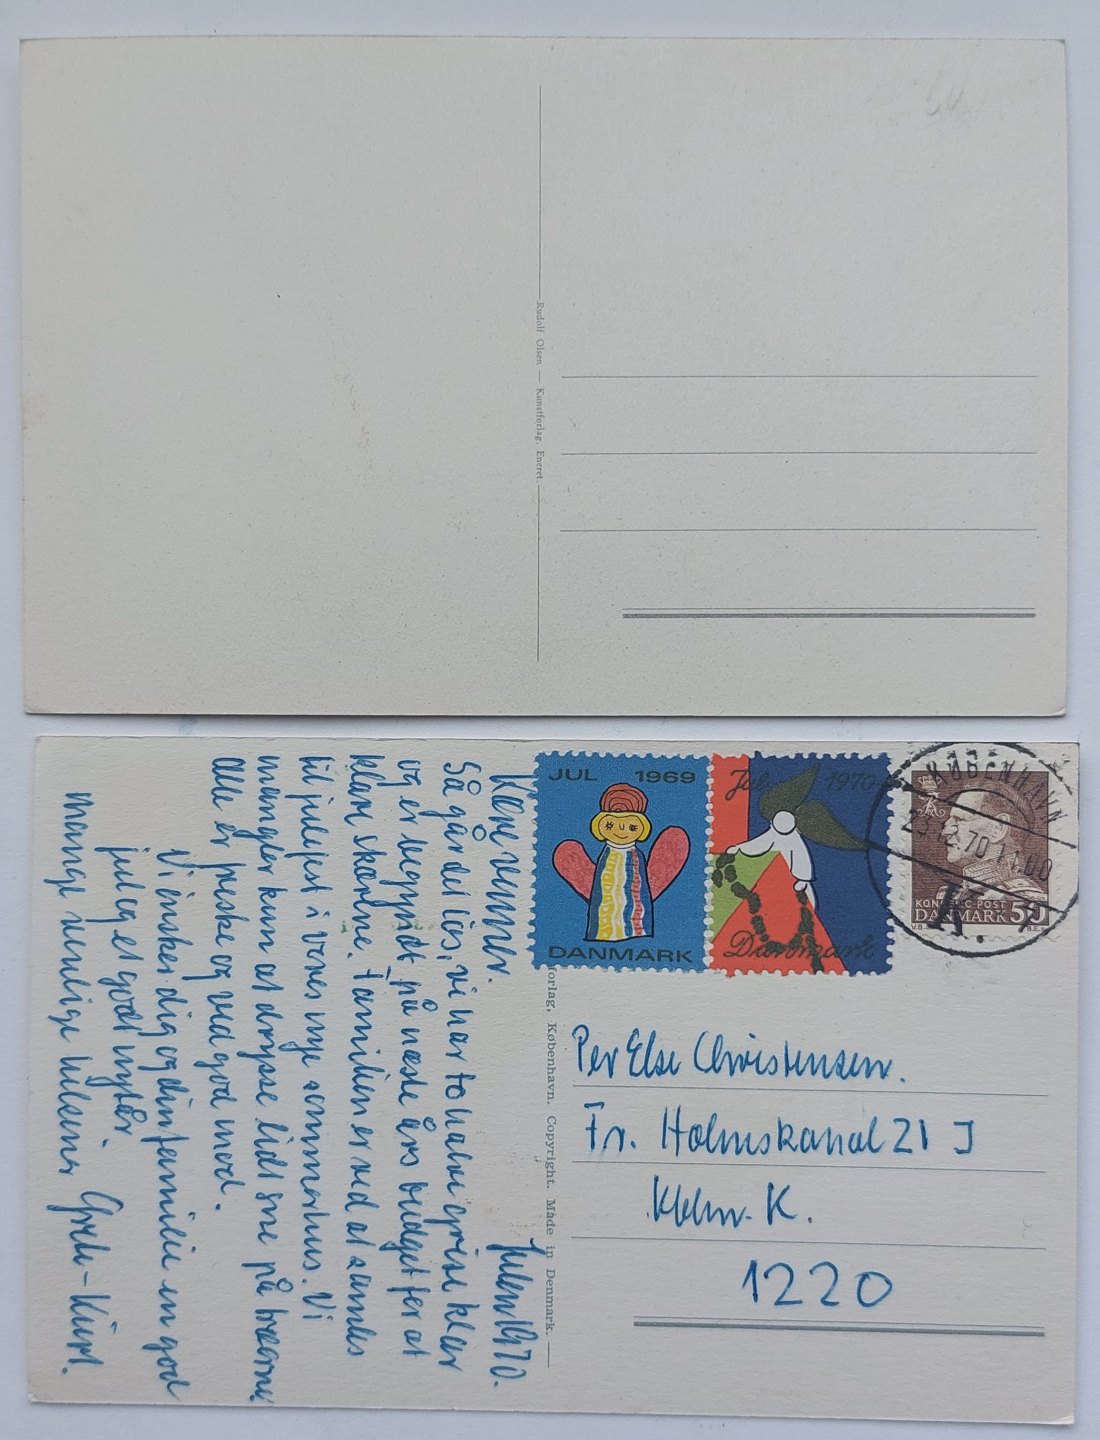 Rudolf Olsen — Kunstforlag. Eneret.
JUL 1969
DANMARK
Jul 1970
Danmark
KØBENHAVN
23.12.70 11.00
K
KONGELIG POST
DANMARK 50
forlag, København. Copyright. Made in Denmark.
Per Else Christensen.
Fr. Holmskanal 21 I
Kbhvn. K.
1220
Julen 1970.
Kære venner.
Så går det løs, vi har to halve grise klar
og er begyndt på næste års budget for at
klare skærene. Familien er ved at samles
til juleføst i vores nye sommerhus. Vi
mangler kun at drysse lidt sne på træerne
alle er friske og ved god mod.
Vi ønsker dig og din familie en god
jul og et godt nytår.
mange venlige hilsner Grete - Kurt.